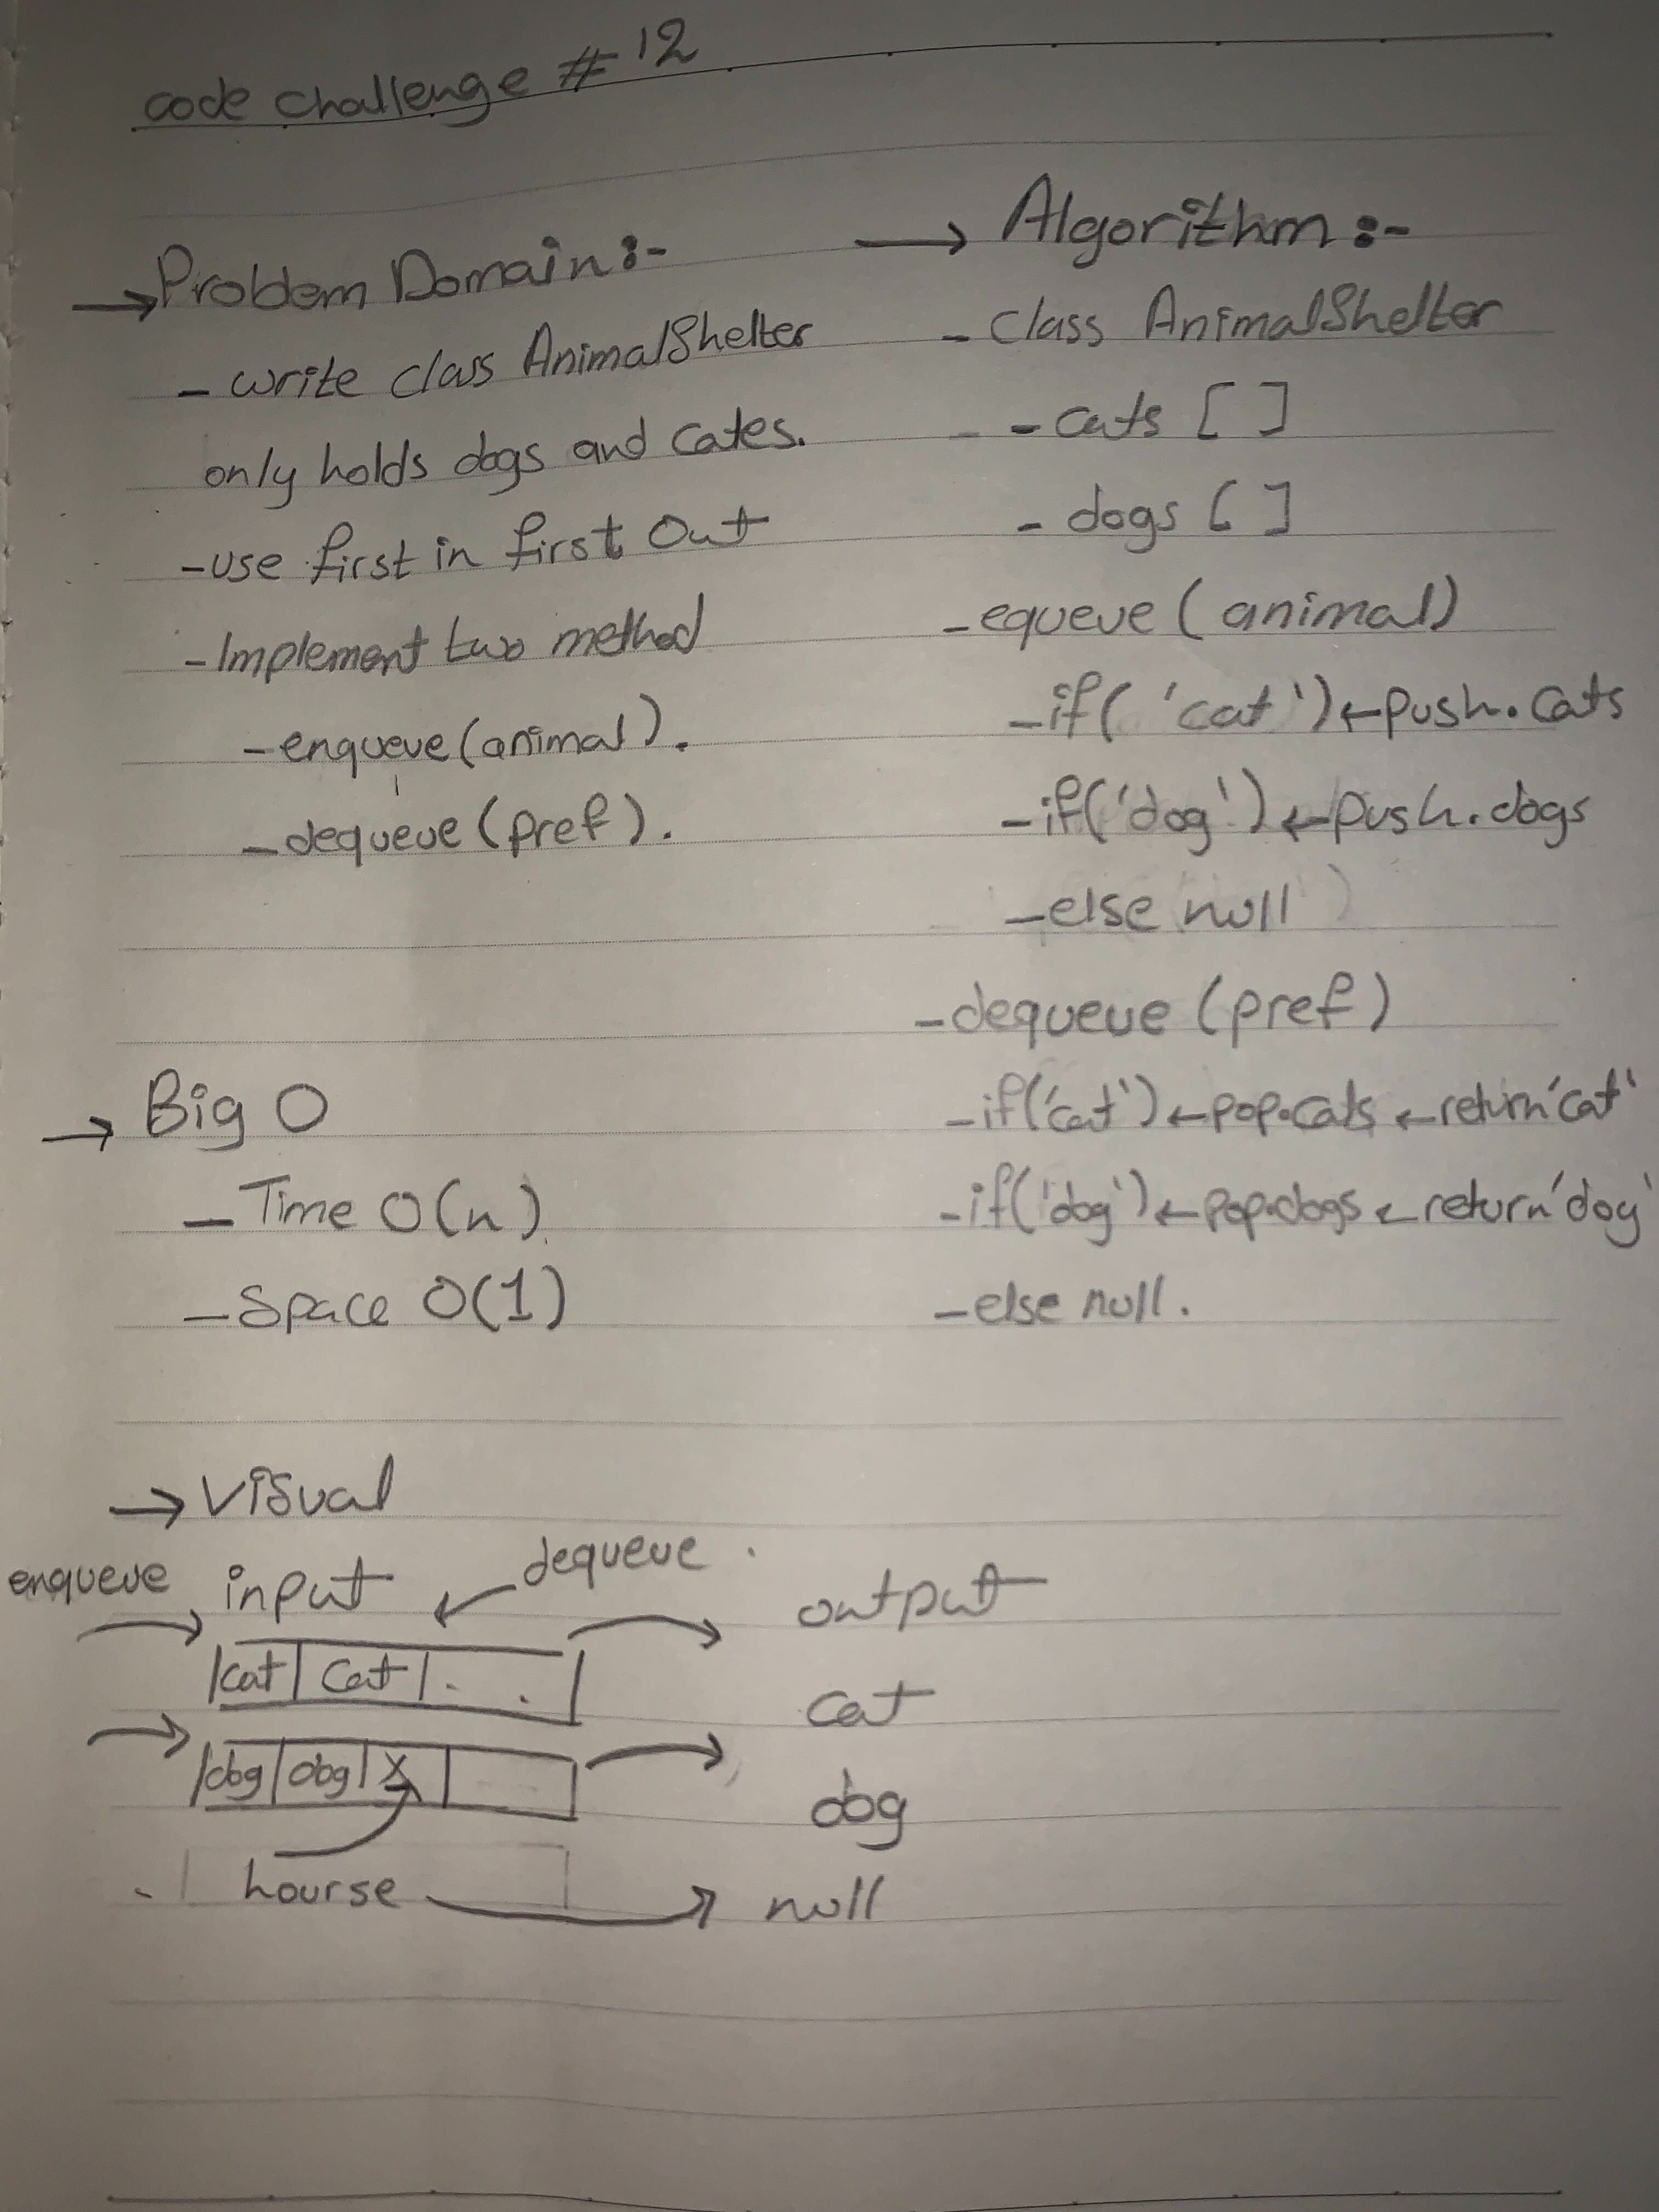 code challenge # 12
→ Problem Domain :-
- write class AnimalShelter
only holds dogs and Cates.
- use first in first Out
- Implement two method
- enqueue (animal).
- dequeue (pref).
→ Big O
- Time O(n)
- Space O(1)
→ Algorithm :-
- Class AnimalShelter
- cats [ ]
- dogs [ ]
- equeue (animal)
- if( 'cat' ) ← push.Cats
- if('dog') ← push.dogs
- else null
- dequeue (pref)
- if('cat') ← pop.cats ← return 'cat'
- if('dog') ← pop.dogs ← return 'dog'
- else null.
→ Visual
enqueue input dequeue output
cat cat . . cat
dog dog X dog
hourse null